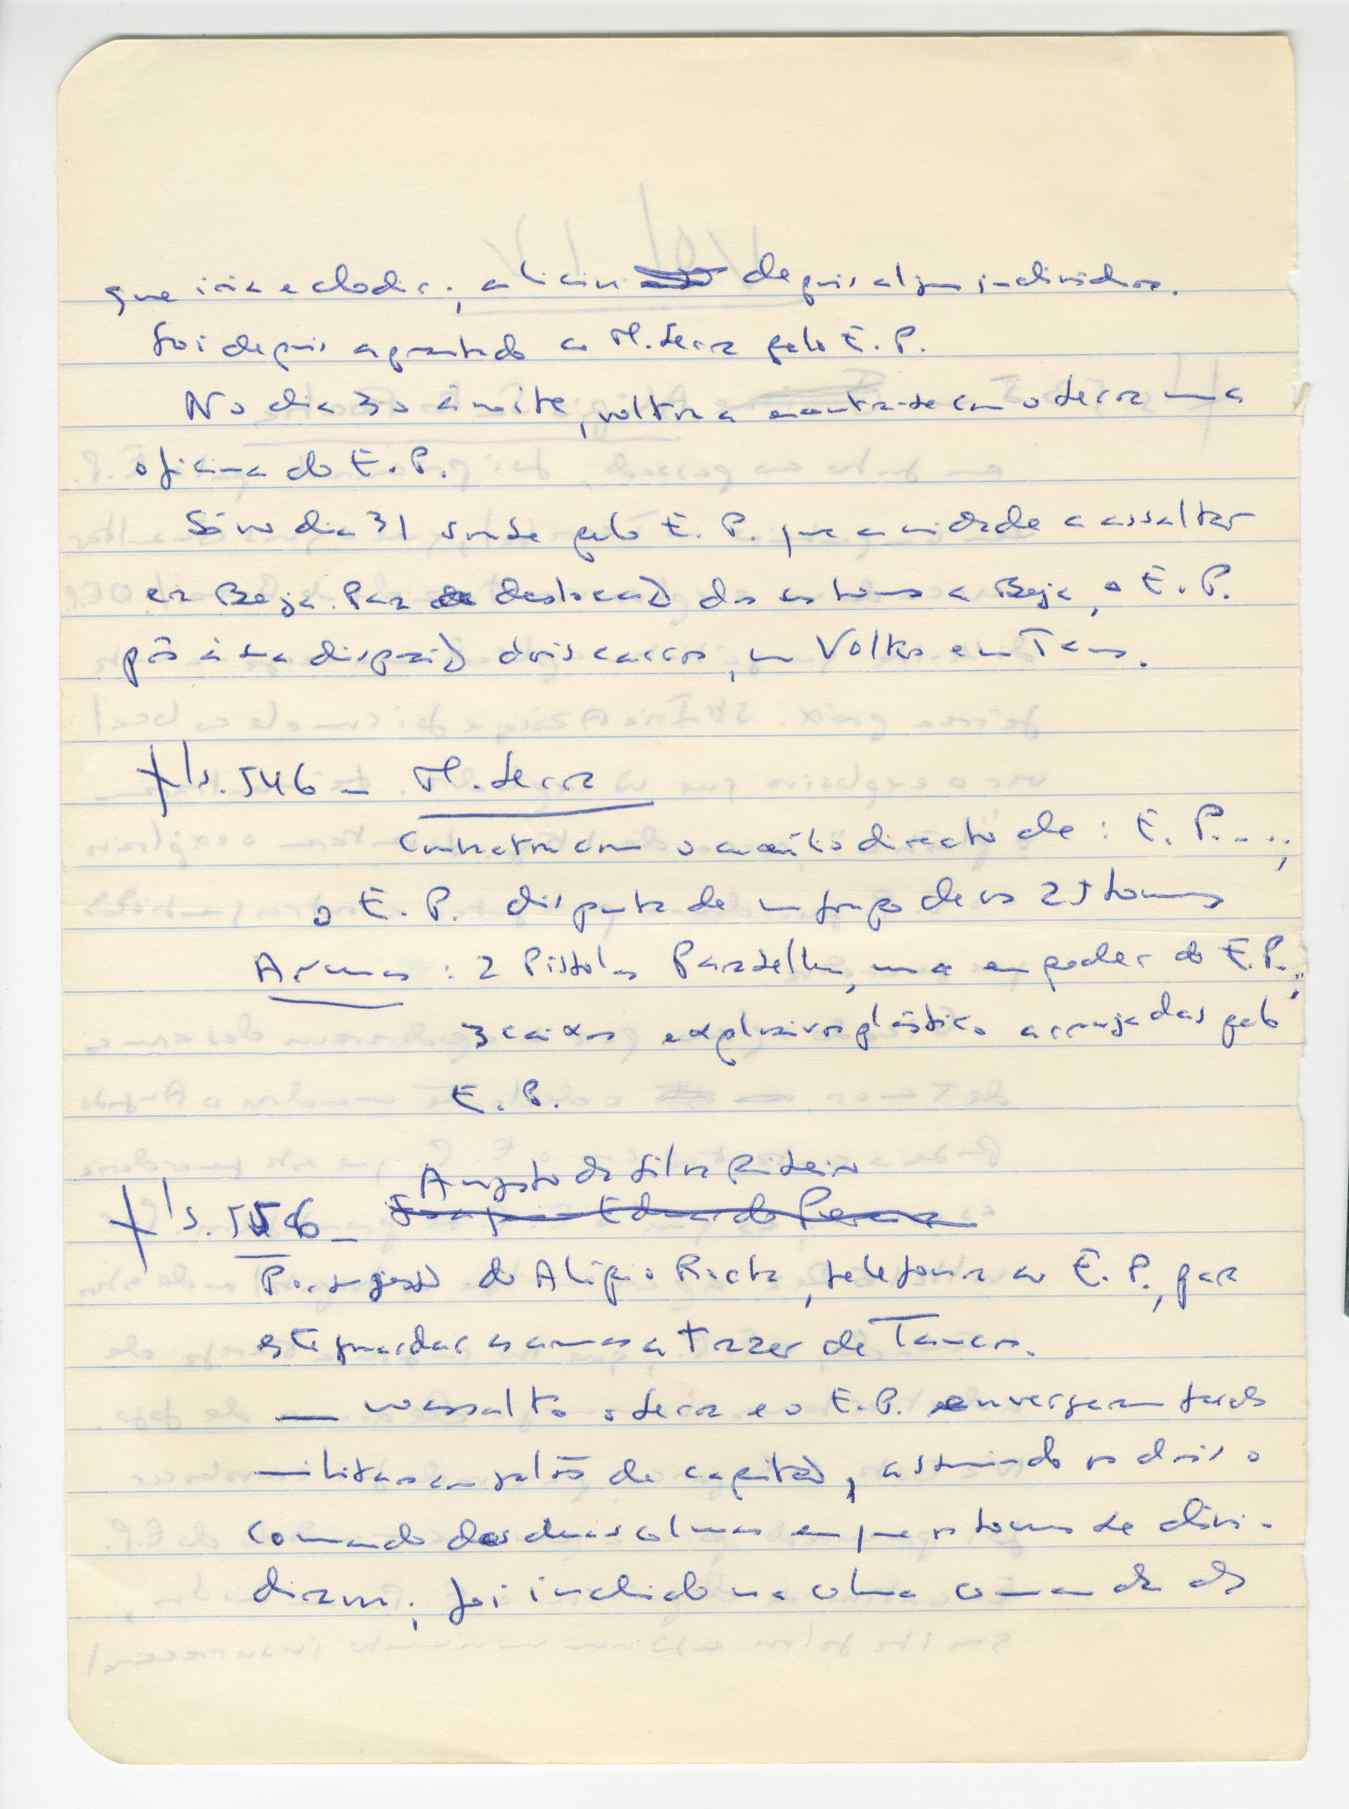 que iria eclodir; aliciou depois alguns individuos.
Foi depois apresentado ao M. Serra pelo E. P.
No dia 30 à noite, voltou a encontrar-se com o Serra na
oficina do E. P.
Só no dia 31 soube pelo E. P. que a unidade a assaltar
era Beja. Para deslocação dos homens a Beja, o E. P.
pôs à sua disposição dois carros, um Volks e um Taunus.
fls. 546 - M. Serra
Contactou com o auxílio directo de: E. P. ...;
o E. P. disporia de um grupo de uns 25 homens
Armas: 2 Pistolas Parabellum, uma em poder do E. P.;
3 caixas explosivos plástico arranjadas pelo
E. P.
Augusto da Silva Ribeiro
fls. 556 - Joaquim Eduardo Pereira
Por sugestão do Alípio Rocha, telefonou ao E. P., para
este guardar as armas a trazer de Tancos.
— no assalto o Serra e o E. P. envergaram fardas
militares com galões de capitão, assumindo os dois o
comando das duas colunas em que os homens se divi-
diram; foi incluido na coluna comandada do